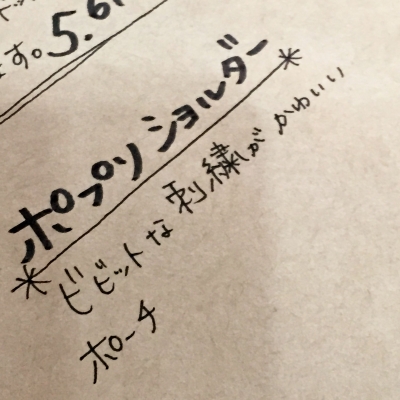 ます。5.6
ポプリショルダー
ビビットな刺繍がかわいい
ポーチ